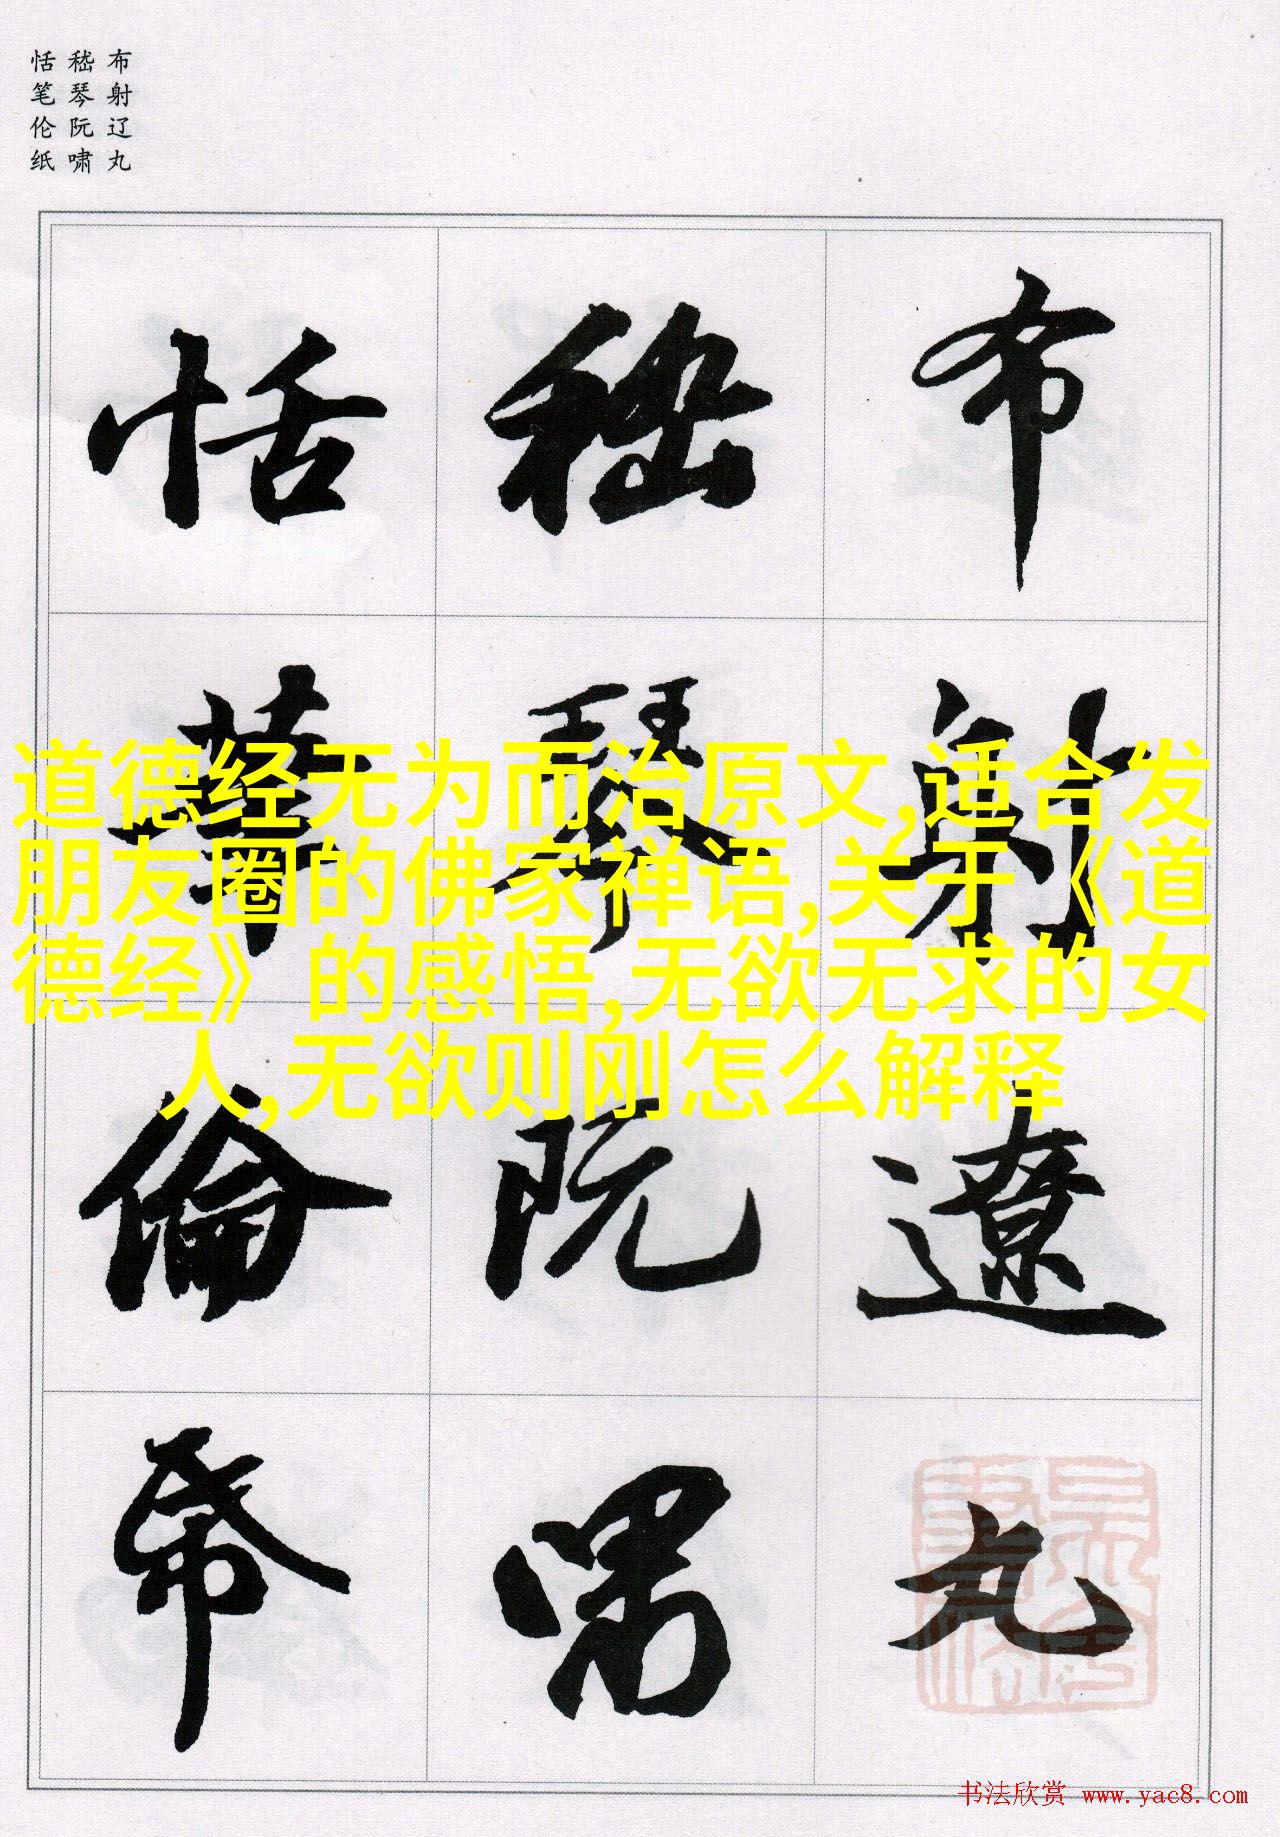 布射辽丸
嵇琴阮啸
恬笔伦纸
布射遼丸
嵇琴阮嘯
恬筆倫帋
道德经无为而治原文,适合发
朋友圈的佛家禅语,关于《道
德经》的感悟,无欲无求的女
人,无欲则刚怎么解释
书法欣赏 www.yac8.com